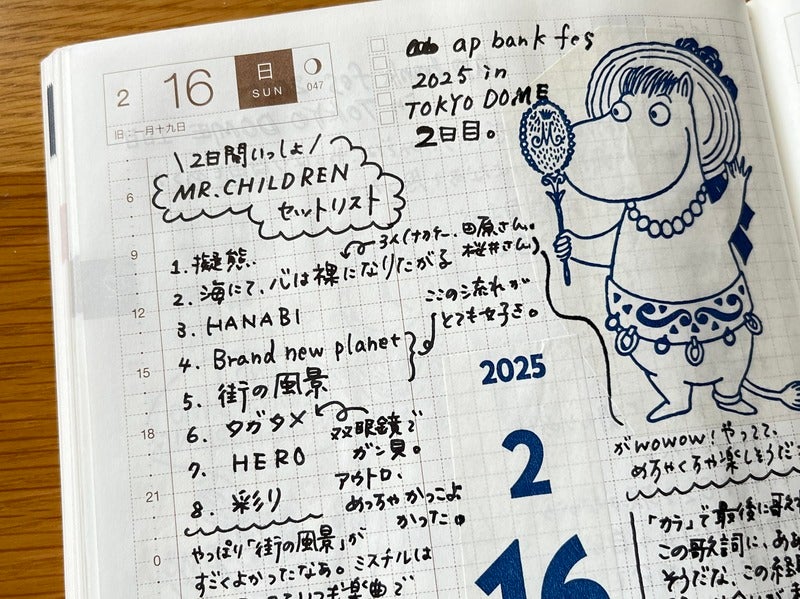 2
16
日
SUN
047
旧:一月十九日
ap bank fes
2025 in
TOKYO DOME
2日目。
\2日間いっしょ/
MR.CHILDREN
セットリスト
6
9
12
15
18
21
0
1. 擬態
2. 海にて、心は裸になりたがる
3人(ナカケー、田原さん。
桜井さん)
3. HANABI
4. Brand new planet
5. 街の風景
ここの流れが
とても好き。
6. タガタメ
双眼鏡で
ガン見。
7. HERO
8. 彩り
アウトロ、
めっちゃかっこよ
かった。
やっぱり「街の風景」が
すごくよかったなあ。ミスチルは
いつも楽曲で
2025
2
16
がwowow!やってて、
めちゃくちゃ楽しそうだ
「カラ」で最後に歌え
この歌詞に、ああ
そうだな、この経